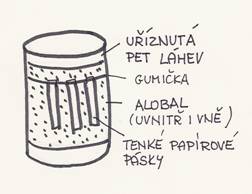 UŘÍZNUTÁ
PET LÁHEV
GUMIČKA
ALOBAL
(UVNITŘ I VNĚ)
TENKÉ PAPÍROVÉ
PÁSKY